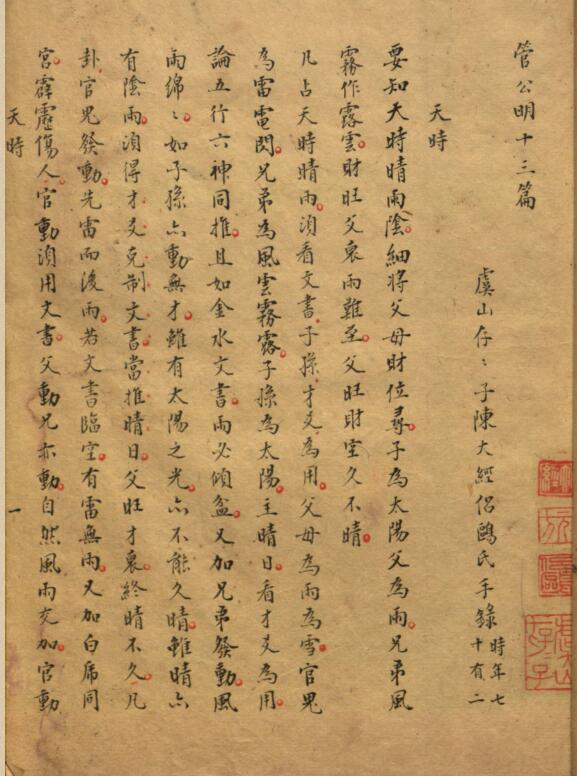 管公明十三篇
虞山存〻子陳大經侶鷗氏手錄時年七十有二
天時
要知天時晴雨陰。細將父母財位尋。子為太陽父為雨。兄弟風
霧作露雲。財旺父衰雨難至。父旺財空久不晴。
凡占天時晴雨。湏看文書。子孫。才爻為用。父母為雨為雪。官鬼
為雷電閃。兄弟為風雲霧露。子孫為太陽。主晴日。看才爻為用。
論五行六神同推。且如金水文書。雨必傾盆。又加兄弟發動。風
雨綿〻。如子孫亦動無才。雖有太陽之光。亦不能久晴。雖晴亦
有陰雨。湏得才爻克制文書。當推晴日。父旺才衰。終晴不久。凡
卦官鬼發動。先雷而後雨。若文書臨空。有雷無雨。又加白虎同
宮。霹靂傷人。官動湏用文書。父動兄亦動。自然風雨交加。官動
天時
一